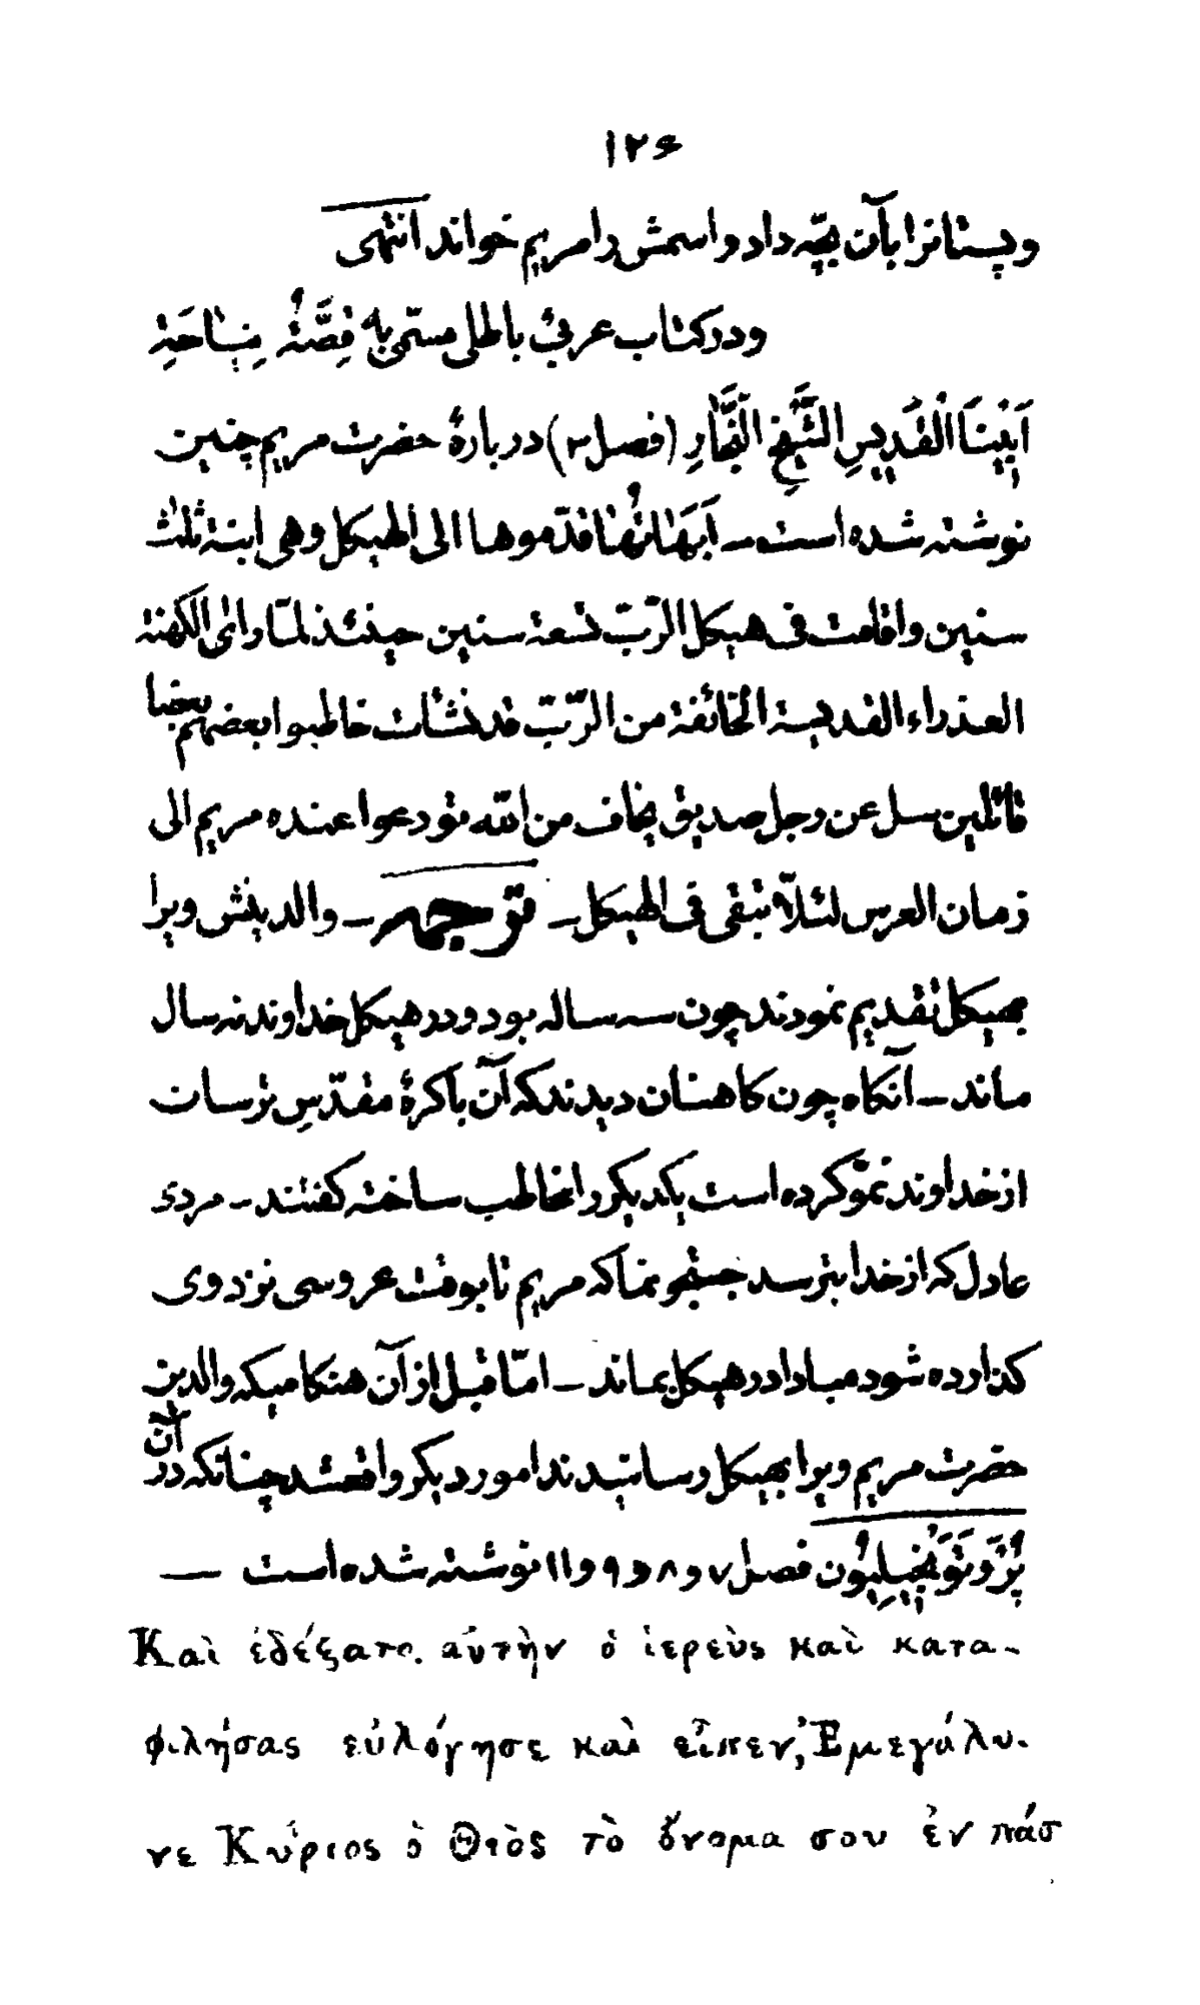 ۱۲۶
و پستانرا بآن بچّه داد و اسمش را مریم خواند انتهی
و در کتاب عربیّ باطلی مسمّی به قِصَّةُ نِيَاحَةِ
اَبِينَا الْقَدِيسِ الشَّيْخِ النَّجَّارِ (فصل ۳) دربارهٔ حضرت مریم چنین
نوشته شده است – اَبَهَاتُهَا قدّموها الی الهیکل وهی ابنة ثلث
سنین واقامت فی هیکل الرّبّ تسعة سنین حینئذ لمّا رای الکهنة
العذراء القدیسة الخائفة من الرّبّ قد نشأت خاطبوا بعضهم بعضا
قائلین سل عن رجل صدیق یخاف من اللّه تودعوا عنده مریم الی
زمان العرس لئلّا تبقی فی الهیکل – ترجمه – والدینش ویرا
بهیکل تقدیم نمودند چون سه ساله بود و در هیکل خداوند نه سال
ماند – آنکاه چون کاهنان دیدند که آن باکرهٔ مقدّسِ ترسان
از خداوند نموّ کرده است یکدیکر را مخاطب ساخته کفتند – مردی
عادل که از خدا بترسد جستجو نما که مریم تا بوقت عروسی نزد وی
کذارده شود مبادا در هیکل بماند – امّا قبل از آن هنکامیکه والدین
حضرت مریم ویرا بهیکل رسانیدند امور دیکر واقع شد چنانکه در آن
پْرُوتَوَنْجِیلِیُون فصل ۷ و ۸ و ۹ و ۱۱ نوشته شده است —
Καὶ ἐδέξατο αὐτὴν ὁ ἱερεὺς καὶ κατα-
φιλήσας εὐλόγησε καὶ εἶπεν, Ἐμεγάλυ-
νε Κύριος ὁ Θεὸς τὸ ὄνομα σου ἐν πάσ